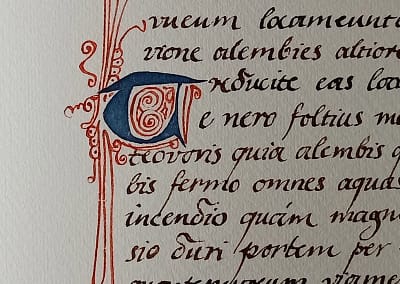 vueum locameunte
vione alembies altiore
reducite eas loca
e nero foltius m
teovoris quia alembis q
bis fermo omnes aquas
incendio quám magn
sio duri portem per